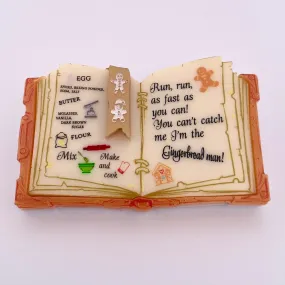 EGG
BUTTER
MOLASSES,
VANILLA,
DARK BROWN
SUGAR
FLOUR
Mix
Make
and
cook
Run, run,
as fast as
you can!
You can't catch
me I'm the
Gingerbread man!